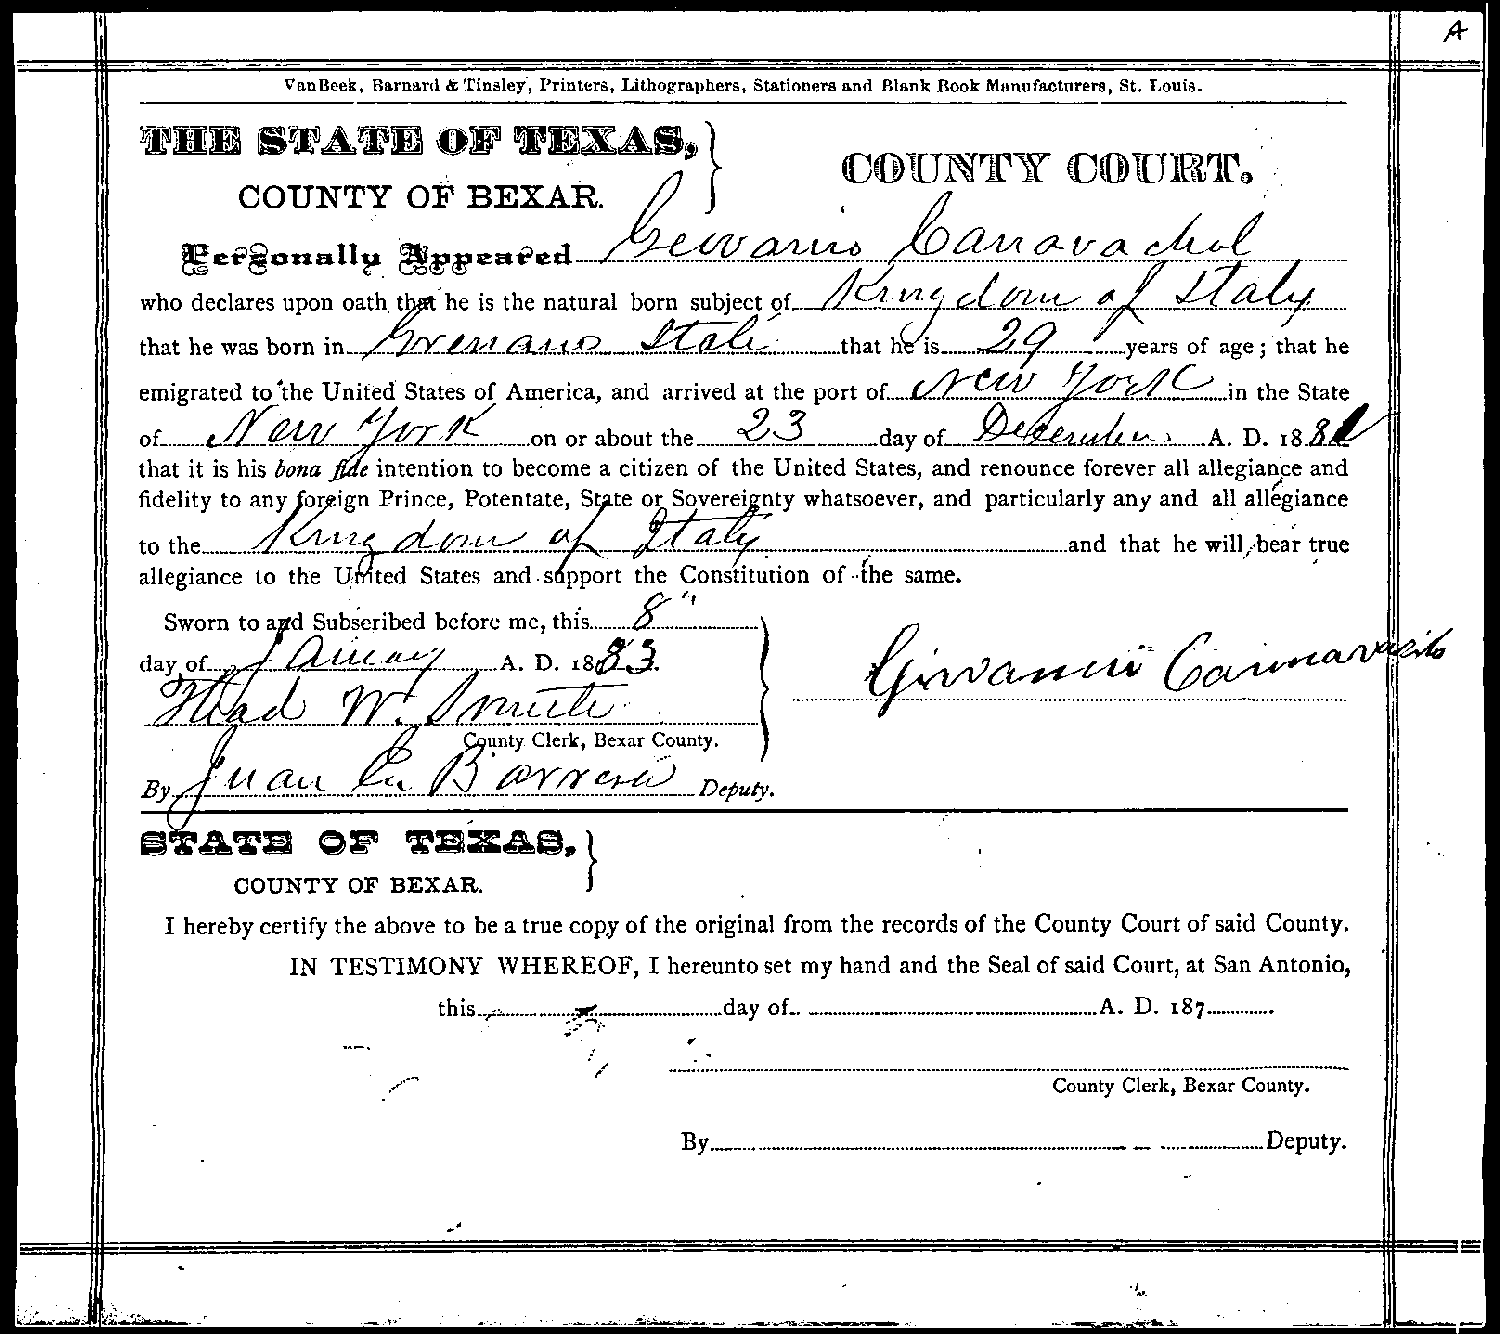 A
VanBeek, Barnard & Tinsley, Printers, Lithographers, Stationers and Blank Book Manufacturers, St. Louis.
THE STATE OF TEXAS,
COUNTY COURT.
COUNTY OF BEXAR.
Personally Appeared Geovanis Canavachol
who declares upon oath that he is the natural born subject of Kingdom of Italy
that he was born in Itali that he is 29 years of age; that he
emigrated to the United States of America, and arrived at the port of New York in the State
of New York on or about the 23 day of December A. D. 1881
that it is his bona fide intention to become a citizen of the United States, and renounce forever all allegiance and
fidelity to any foreign Prince, Potentate, State or Sovereignty whatsoever, and particularly any and all allegiance
to the Kingdom of Italy and that he will bear true
allegiance to the United States and support the Constitution of the same.
Sworn to and Subscribed before me, this 8"
day of January A. D. 1883.
Giovanni
Thad W. Smith
County Clerk, Bexar County.
By Juan E. Barrera Deputy.
STATE OF TEXAS,
COUNTY OF BEXAR.
I hereby certify the above to be a true copy of the original from the records of the County Court of said County.
IN TESTIMONY WHEREOF, I hereunto set my hand and the Seal of said Court, at San Antonio,
this day of A. D. 187
County Clerk, Bexar County.
By Deputy.